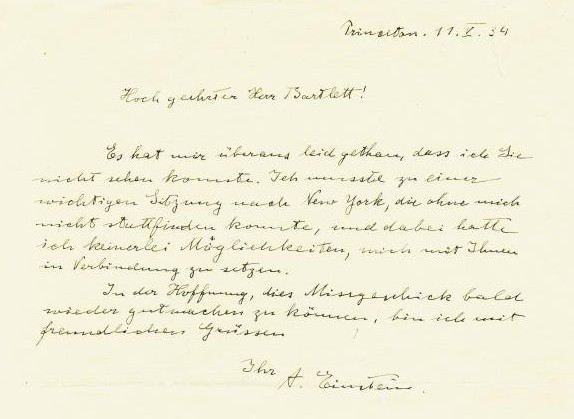 Princeton. 11. X. 34
Hoch geehrter Herr Bartlett!
Es hat mir überaus leid gethan, dass ich Sie
nicht sehen konnte. Ich musste zu einer
wichtigen Sitzung nach New York, die ohne mich
nicht stattfinden konnte, und dabei hatte
ich keinerlei Möglichkeiten, mich mit Ihnen
in Verbindung zu setzen.
In der Hoffnung, dies Missgeschick bald
wieder gutmachen zu können, bin ich mit
freundlichen Grüssen
Ihr
A. Einstein.